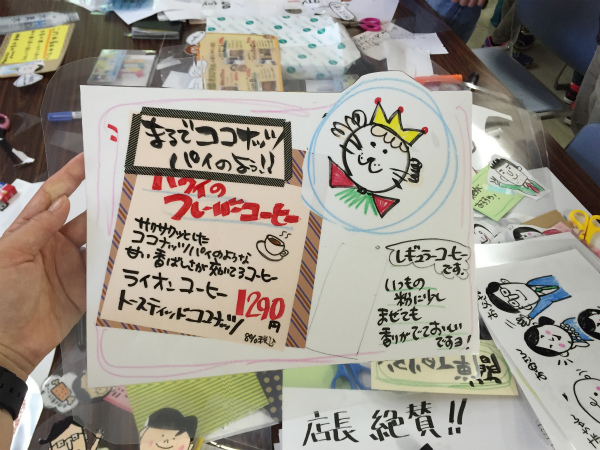 まるでココナッツ
パイのよう!!
ハワイの
フレーバーコーヒー
サクサクッとした
ココナッツパイのような
甘い香ばしさが
コーヒー
ライオンコーヒー
トースティッドココナッツ
1290
円
レギュラーコーヒー
です。
いつもの
粉に少し
まぜても
香りがでておいしい
ですヨ!
店長 絶賛!!